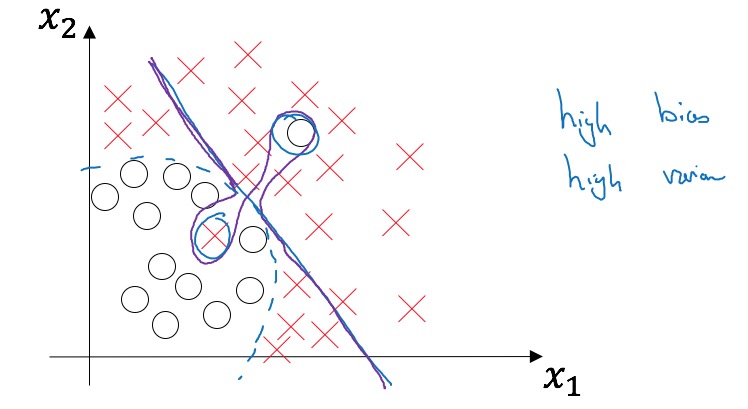 x₂
high bias
high varian
x₁